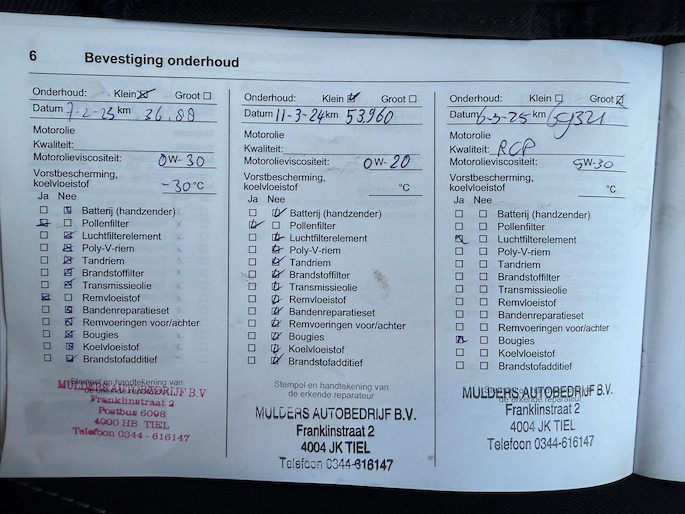 6 Bevestiging onderhoud
Onderhoud: Klein Groot
Datum 7-2-23 km
Motorolie
Kwaliteit:
Motorolieviscositeit: 0W-30
Vorstbescherming,
koelvloeistof -30°C
Ja Nee
Batterij (handzender)
Pollenfilter
Luchtfilterelement
Poly-V-riem
Tandriem
Brandstoffilter
Transmissieolie
Remvloeistof
Bandenreparatieset
Remvoeringen voor/achter
Bougies
Koelvloeistof
Brandstofadditief
Stempel en handtekening van
de erkende reparateur
MULDERS AUTOBEDRIJF B.V
Franklinstraat 2
Postbus 6098
4000 HB TIEL
Telefoon 0344-616147
Onderhoud: Klein Groot
Datum 11-3-24 km 53960
Motorolie
Kwaliteit:
Motorolieviscositeit: 0W-20
Vorstbescherming,
koelvloeistof °C
Ja Nee
Batterij (handzender)
Pollenfilter
Luchtfilterelement
Poly-V-riem
Tandriem
Brandstoffilter
Transmissieolie
Remvloeistof
Bandenreparatieset
Remvoeringen voor/achter
Bougies
Koelvloeistof
Brandstofadditief
Stempel en handtekening van
de erkende reparateur
MULDERS AUTOBEDRIJF B.V.
Franklinstraat 2
4004 JK TIEL
Telefoon 0344-616147
Onderhoud: Klein Groot
Datum 6-3-25 km
Motorolie
Kwaliteit: RCP
Motorolieviscositeit: 5W-30
Vorstbescherming,
koelvloeistof °C
Ja Nee
Batterij (handzender)
Pollenfilter
Luchtfilterelement
Poly-V-riem
Tandriem
Brandstoffilter
Transmissieolie
Remvloeistof
Bandenreparatieset
Remvoeringen voor/achter
Bougies
Koelvloeistof
Brandstofadditief
de erkende reparateur
MULDERS AUTOBEDRIJF B.V.
Franklinstraat 2
4004 JK TIEL
Telefoon 0344-616147